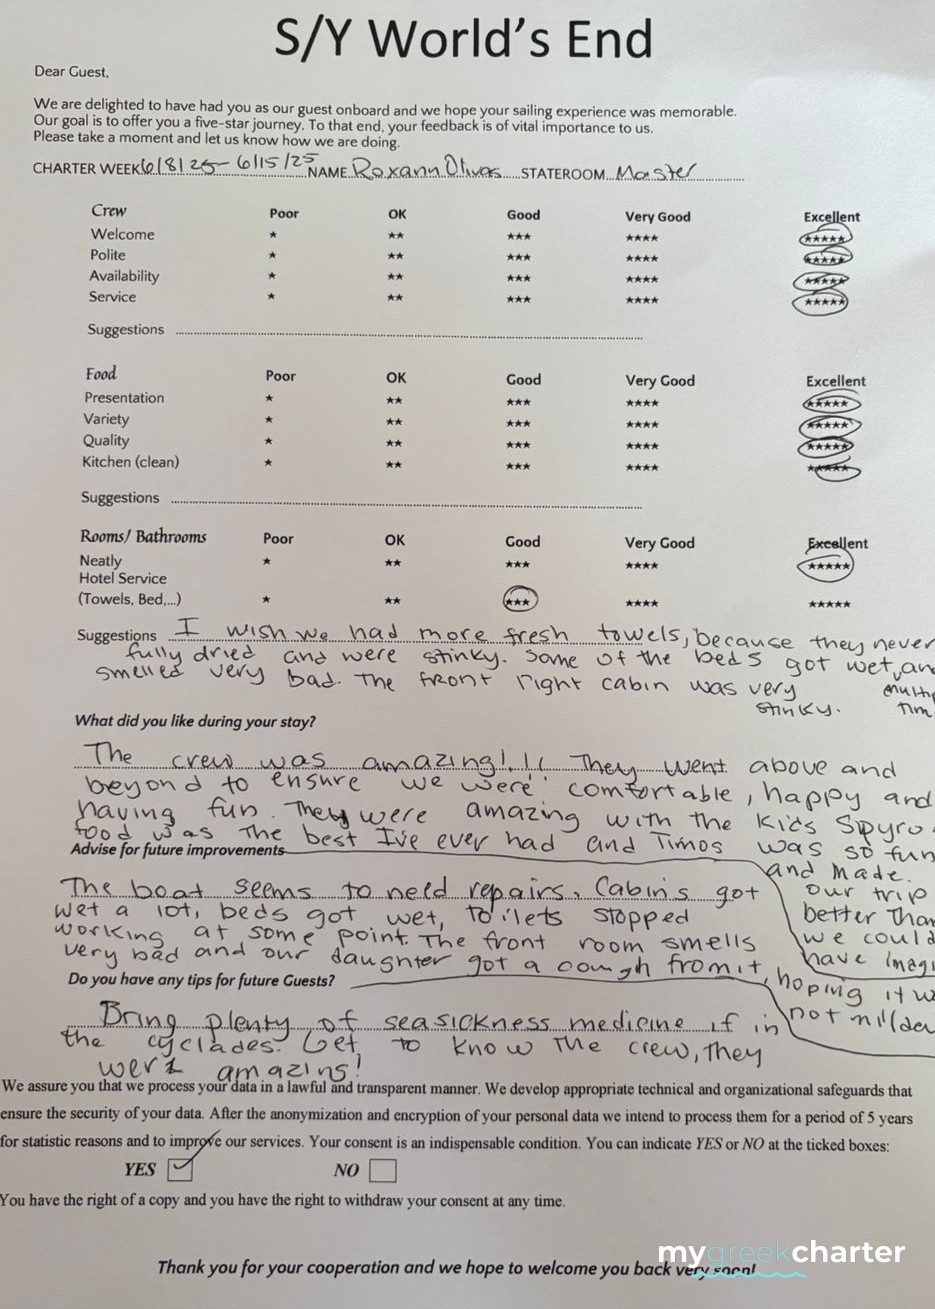 S/Y World's End
Dear Guest,
We are delighted to have had you as our guest onboard and we hope your sailing experience was memorable.
Our goal is to offer you a five-star journey. To that end, your feedback is of vital importance to us.
Please take a moment and let us know how we are doing.
CHARTER WEEK 6/8/25 - 6/15/25 NAME Roxann Olivas STATEROOM Master
Crew Poor OK Good Very Good Excellent
Welcome ★ ★★ ★★★ ★★★★ ★★★★★
Polite ★ ★★ ★★★ ★★★★ ★★★★★
Availability ★ ★★ ★★★ ★★★★ ★★★★★
Service ★ ★★ ★★★ ★★★★ ★★★★★
Suggestions
Food Poor OK Good Very Good Excellent
Presentation ★ ★★ ★★★ ★★★★ ★★★★★
Variety ★ ★★ ★★★ ★★★★ ★★★★★
Quality ★ ★★ ★★★ ★★★★ ★★★★★
Kitchen (clean) ★ ★★ ★★★ ★★★★ ★★★★★
Suggestions
Rooms/ Bathrooms Poor OK Good Very Good Excellent
Neatly ★ ★★ ★★★ ★★★★ ★★★★★
Hotel Service
(Towels, Bed,...) ★ ★★ ★★★ ★★★★ ★★★★★
Suggestions I wish we had more fresh towels, because they never
fully dried and were stinky. Some of the beds got wet, an
smelled very bad. The front right cabin was very
stinky.
multi
Tim
What did you like during your stay?
The crew was amazing!!! They went above and
beyond to ensure we were comfortable, happy and
having fun. They were amazing with the kids Spyro
food was the best I've ever had and Timos was so fun
and made
our trip
better than
we could
have imagi
Advise for future improvements
The boat seems to need repairs. Cabins got
wet a lot, beds got wet, toilets stopped
working at some point. The front room smells
very bad and our daughter got a cough from it,
hoping it w
not mildew
Do you have any tips for future Guests?
Bring plenty of seasickness medicine if in
the cyclades. Get to know the crew, they
were amazing!
We assure you that we process your data in a lawful and transparent manner. We develop appropriate technical and organizational safeguards that
ensure the security of your data. After the anonymization and encryption of your personal data we intend to process them for a period of 5 years
for statistic reasons and to improve our services. Your consent is an indispensable condition. You can indicate YES or NO at the ticked boxes:
YES NO
You have the right of a copy and you have the right to withdraw your consent at any time.
mygreekcharter
Thank you for your cooperation and we hope to welcome you back very soon!